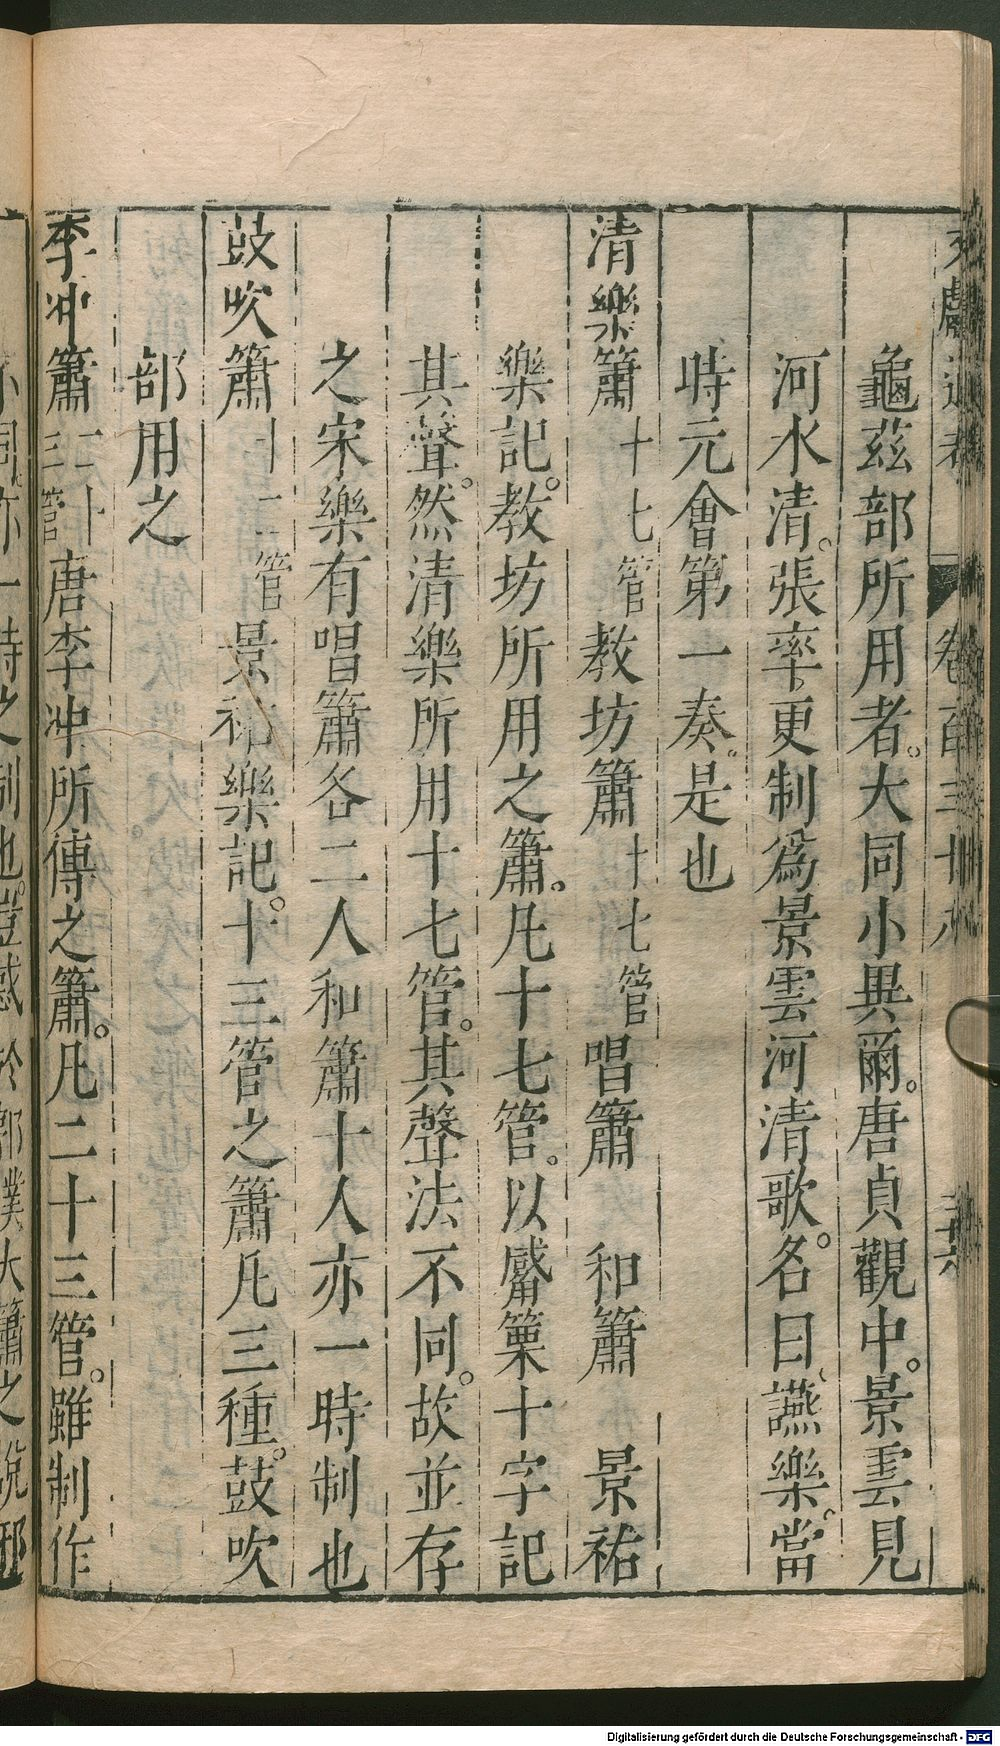 卷百三十八
龜茲部所用者。大同小異爾。唐貞觀中。景雲見
河水清。張率更制爲景雲河清歌。名曰、讌樂。當
時元會第一奏。是也
清樂簫十七管 教坊簫十七管 唱簫 和簫 景祐
樂記。教坊所用之簫。凡十七管。以觱篥十字記
其聲。然清樂所用十七管。其聲法不同。故並存
之宋樂有唱簫各二人和簫十人亦一時制也
鼓吹簫十三管 景祐樂記。十三管之簫凡三種。鼓吹
部用之
李冲簫二十三管 唐李冲所傳之簫。凡二十三管。雖制作
不同亦一時之制也。豈惑於郭璞大簫之說邪
Digitalisierung gefördert durch die Deutsche Forschungsgemeinschaft - DFG